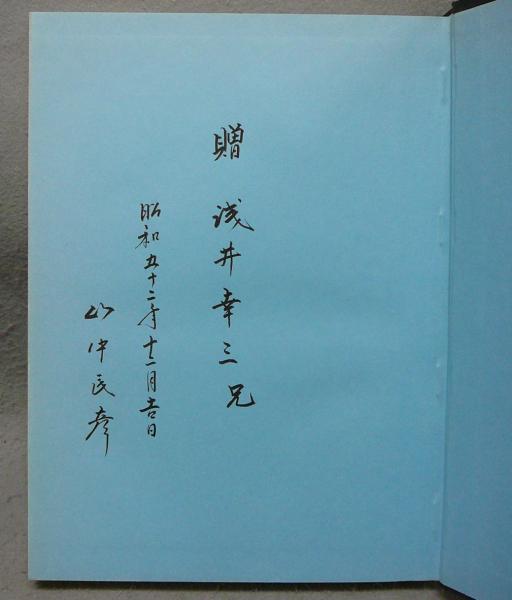 贈 浅井幸三兄
昭和五十二年十一月吉日
山中民彦